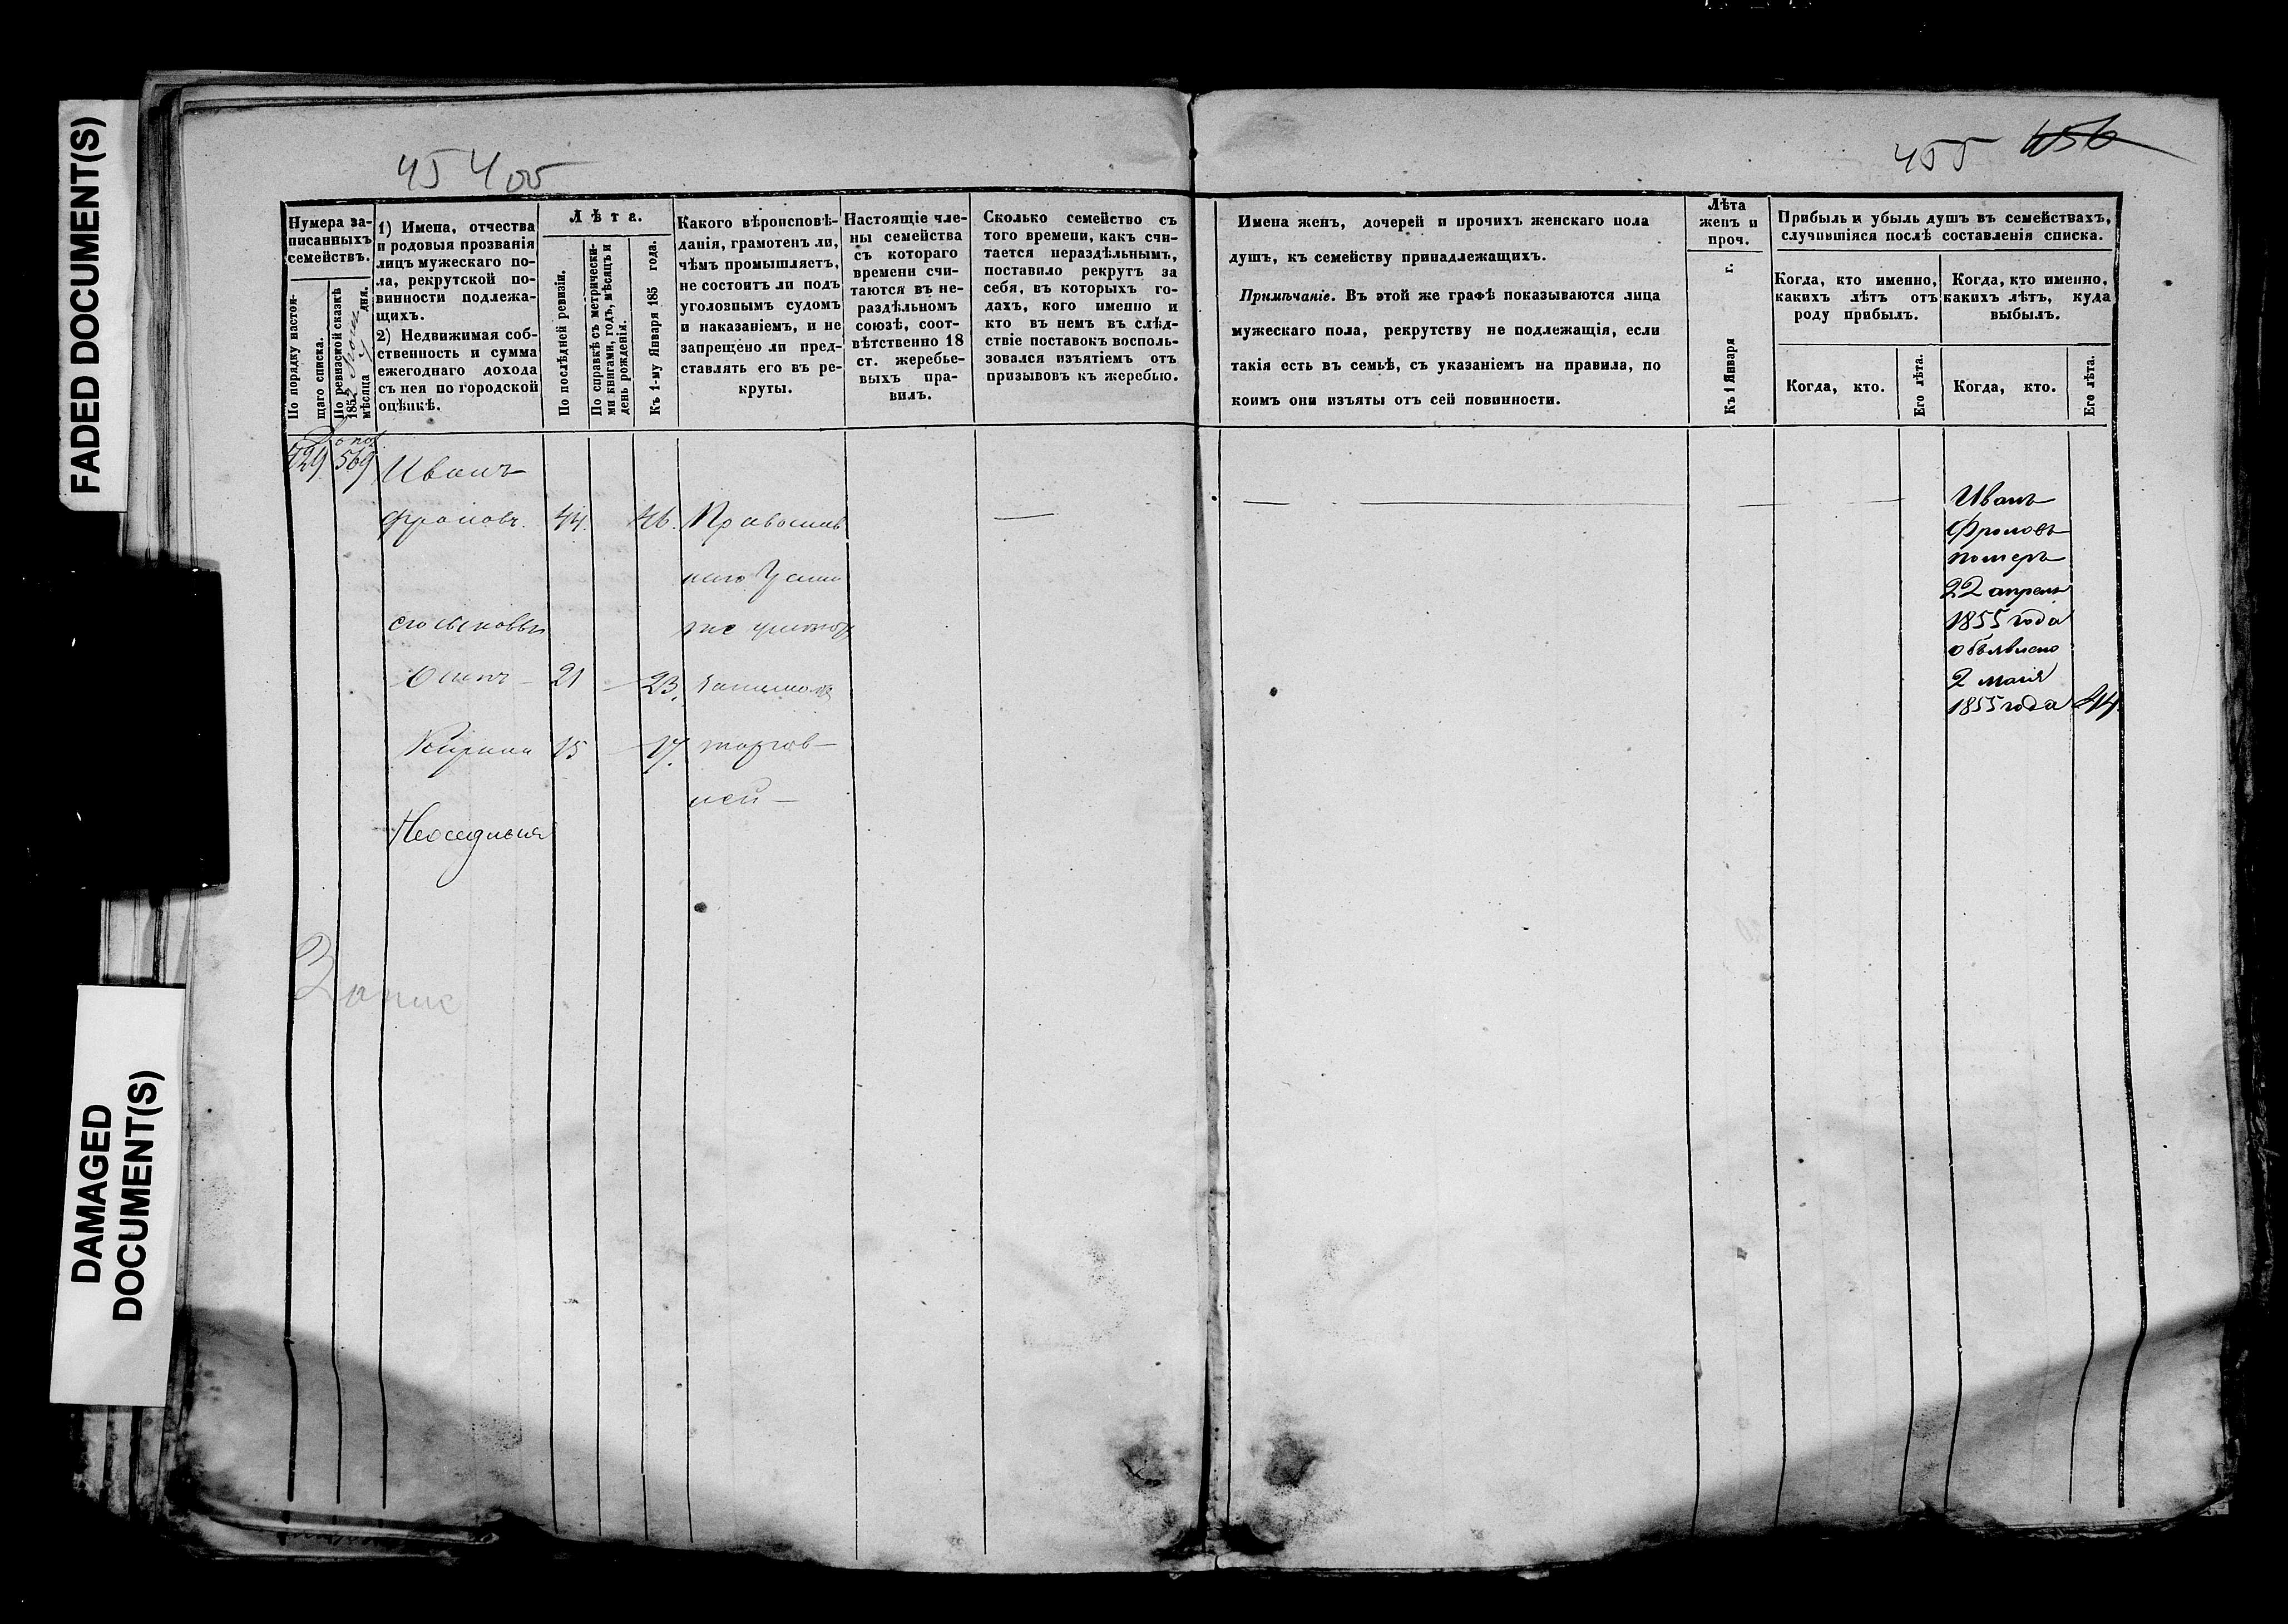 FADED DOCUMENT(S)
DAMAGED
DOCUMENT(S)
455
456
Нумера за-
писанныхъ
семействъ.
По порядку настоя-
щаго списка.
По ревизской сказкѣ
185
мѣсяца дня.
1) Имена, отчества
и родовыя прозванія
лицъ мужескаго по-
ла, рекрутской по-
винности подлежа-
щихъ.
2) Недвижимая соб-
ственность и сумма
ежегоднаго дохода
съ нея по городской
оцѣнкѣ.
Лѣта.
По послѣдней ревизіи.
По справкѣ съ метрически-
ми книгами, годъ, мѣсяцъ и
день рожденія.
Къ 1-му Января 185 года.
Какого вѣроисповѣ-
данія, грамотенъ ли,
чѣмъ промышляетъ,
не состоитъ ли подъ
уголовнымъ судомъ
и наказаніемъ, и не
запрещено ли пред-
ставлять его въ ре-
круты.
Настоящіе чле-
ны семейства
съ котораго
времени счи-
таются въ не-
раздѣльномъ
союзѣ, соот-
вѣтственно 18
ст. жеребье-
выхъ пра-
вилъ.
Сколько семейство съ
того времени, какъ счи-
тается нераздѣльнымъ,
поставило рекрутъ за
себя, въ которыхъ го-
дахъ, кого именно и
кто въ немъ въ слѣд-
ствіе поставокъ восполь-
зовался изъятіемъ отъ
призывовъ къ жеребью.
Имена женъ, дочерей и прочихъ женскаго пола
душъ, къ семейству принадлежащихъ.
Примѣчаніе. Въ этой же графѣ показываются лица
мужескаго пола, рекрутству не подлежащія, если
такія есть въ семьѣ, съ указаніемъ на правила, по
коимъ они изъяты отъ сей повинности.
Лѣта
женъ и
проч.
Къ 1 Января г.
Прибыль и убыль душъ въ семействахъ,
случившіяся послѣ составленія списка.
Когда, кто именно,
какихъ лѣтъ отъ
роду прибылъ.
Когда, кто именно,
какихъ лѣтъ, куда
выбылъ.
Когда, кто.
Его лѣта.
Когда, кто.
Его лѣта.
569
Иванъ
Фроловъ. 44. 46. Православ
наго
сыновья
Осипъ 21 23.
Кирила 15 17. торгов-
лей
Неоседлыя
Иванъ
Фроловъ
померъ
22 апреля
1855 года
объявлено
2 маія
1855 года 44.